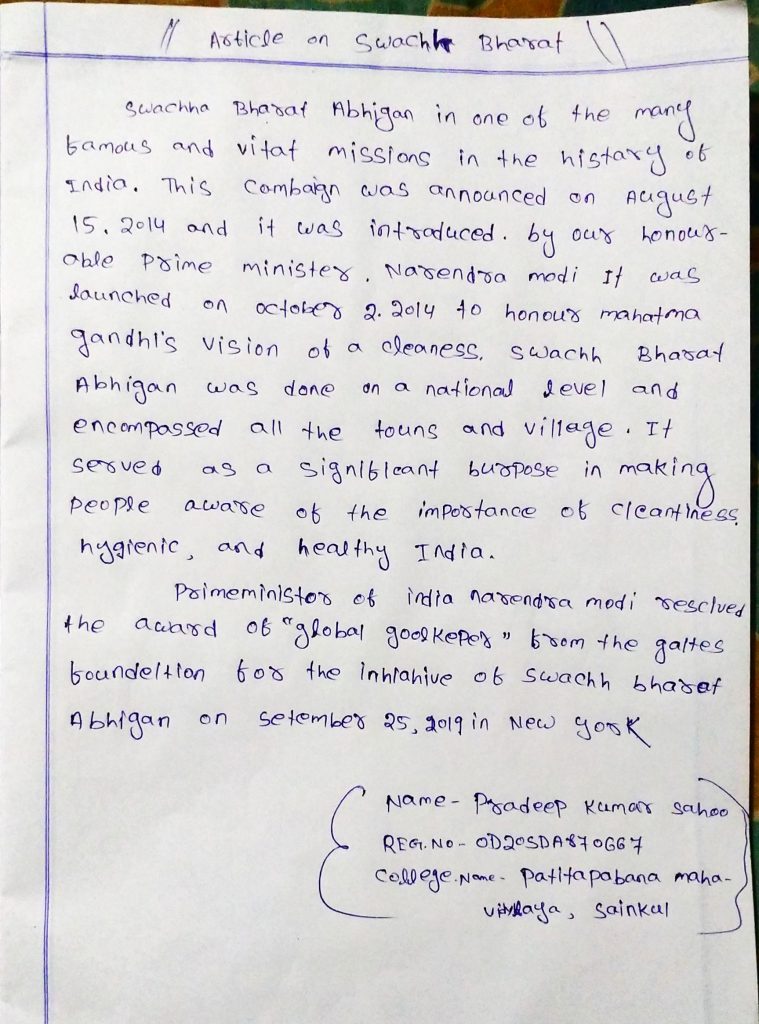 // Article on Swachh Bharat \\
Swachha Bharat Abhigan in one of the many
famous and vitat missions in the histary of
India. This Combaign was announced on August
15. 2014 and it was introduced. by our honour-
able Prime minister. Narendra modi It was
launched on october 2. 2014 to honour mahatma
gandhi's vision of a cleaness. Swachh Bharat
Abhigan was done on a national level and
encompassed all the touns and village. It
served as a significant burpose in making
People aware of the importance of cleantiness
hygienic, and healthy India.
Primeministor of india narendra modi resclved
the award of "global goolkeper" from the galtes
foundeltion for the Inhiahive of swachh bharat
Abhigan on setember 25, 2019 in New York
Name - Pradeep Kumar sahoo
REG. NO - OD20SDA870667
College. Name - Patitapabana maha-
, Sainkul